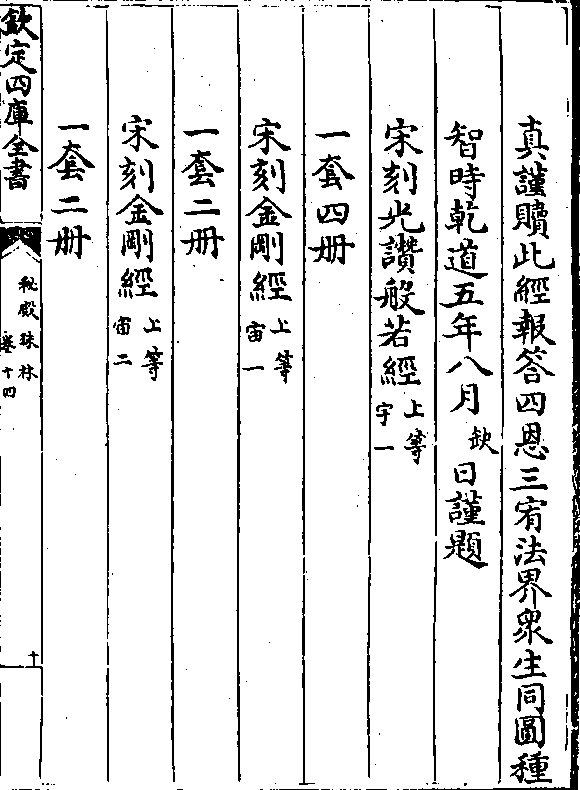 真謹贖此經報答四恩三宥法界衆生同圓種
智時乾道五年八月缺日謹題
宋刻光讚般若經上等宇一
一套四册
宋刻金剛經上等宙一
一套二册
宋刻金剛經上等宙二
一套二册
欽定四庫全書
秘殿珠林
卷十四
十